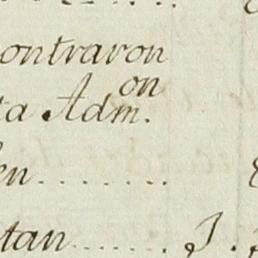 ontraron
ta Adm.on
en........
tan....... J.